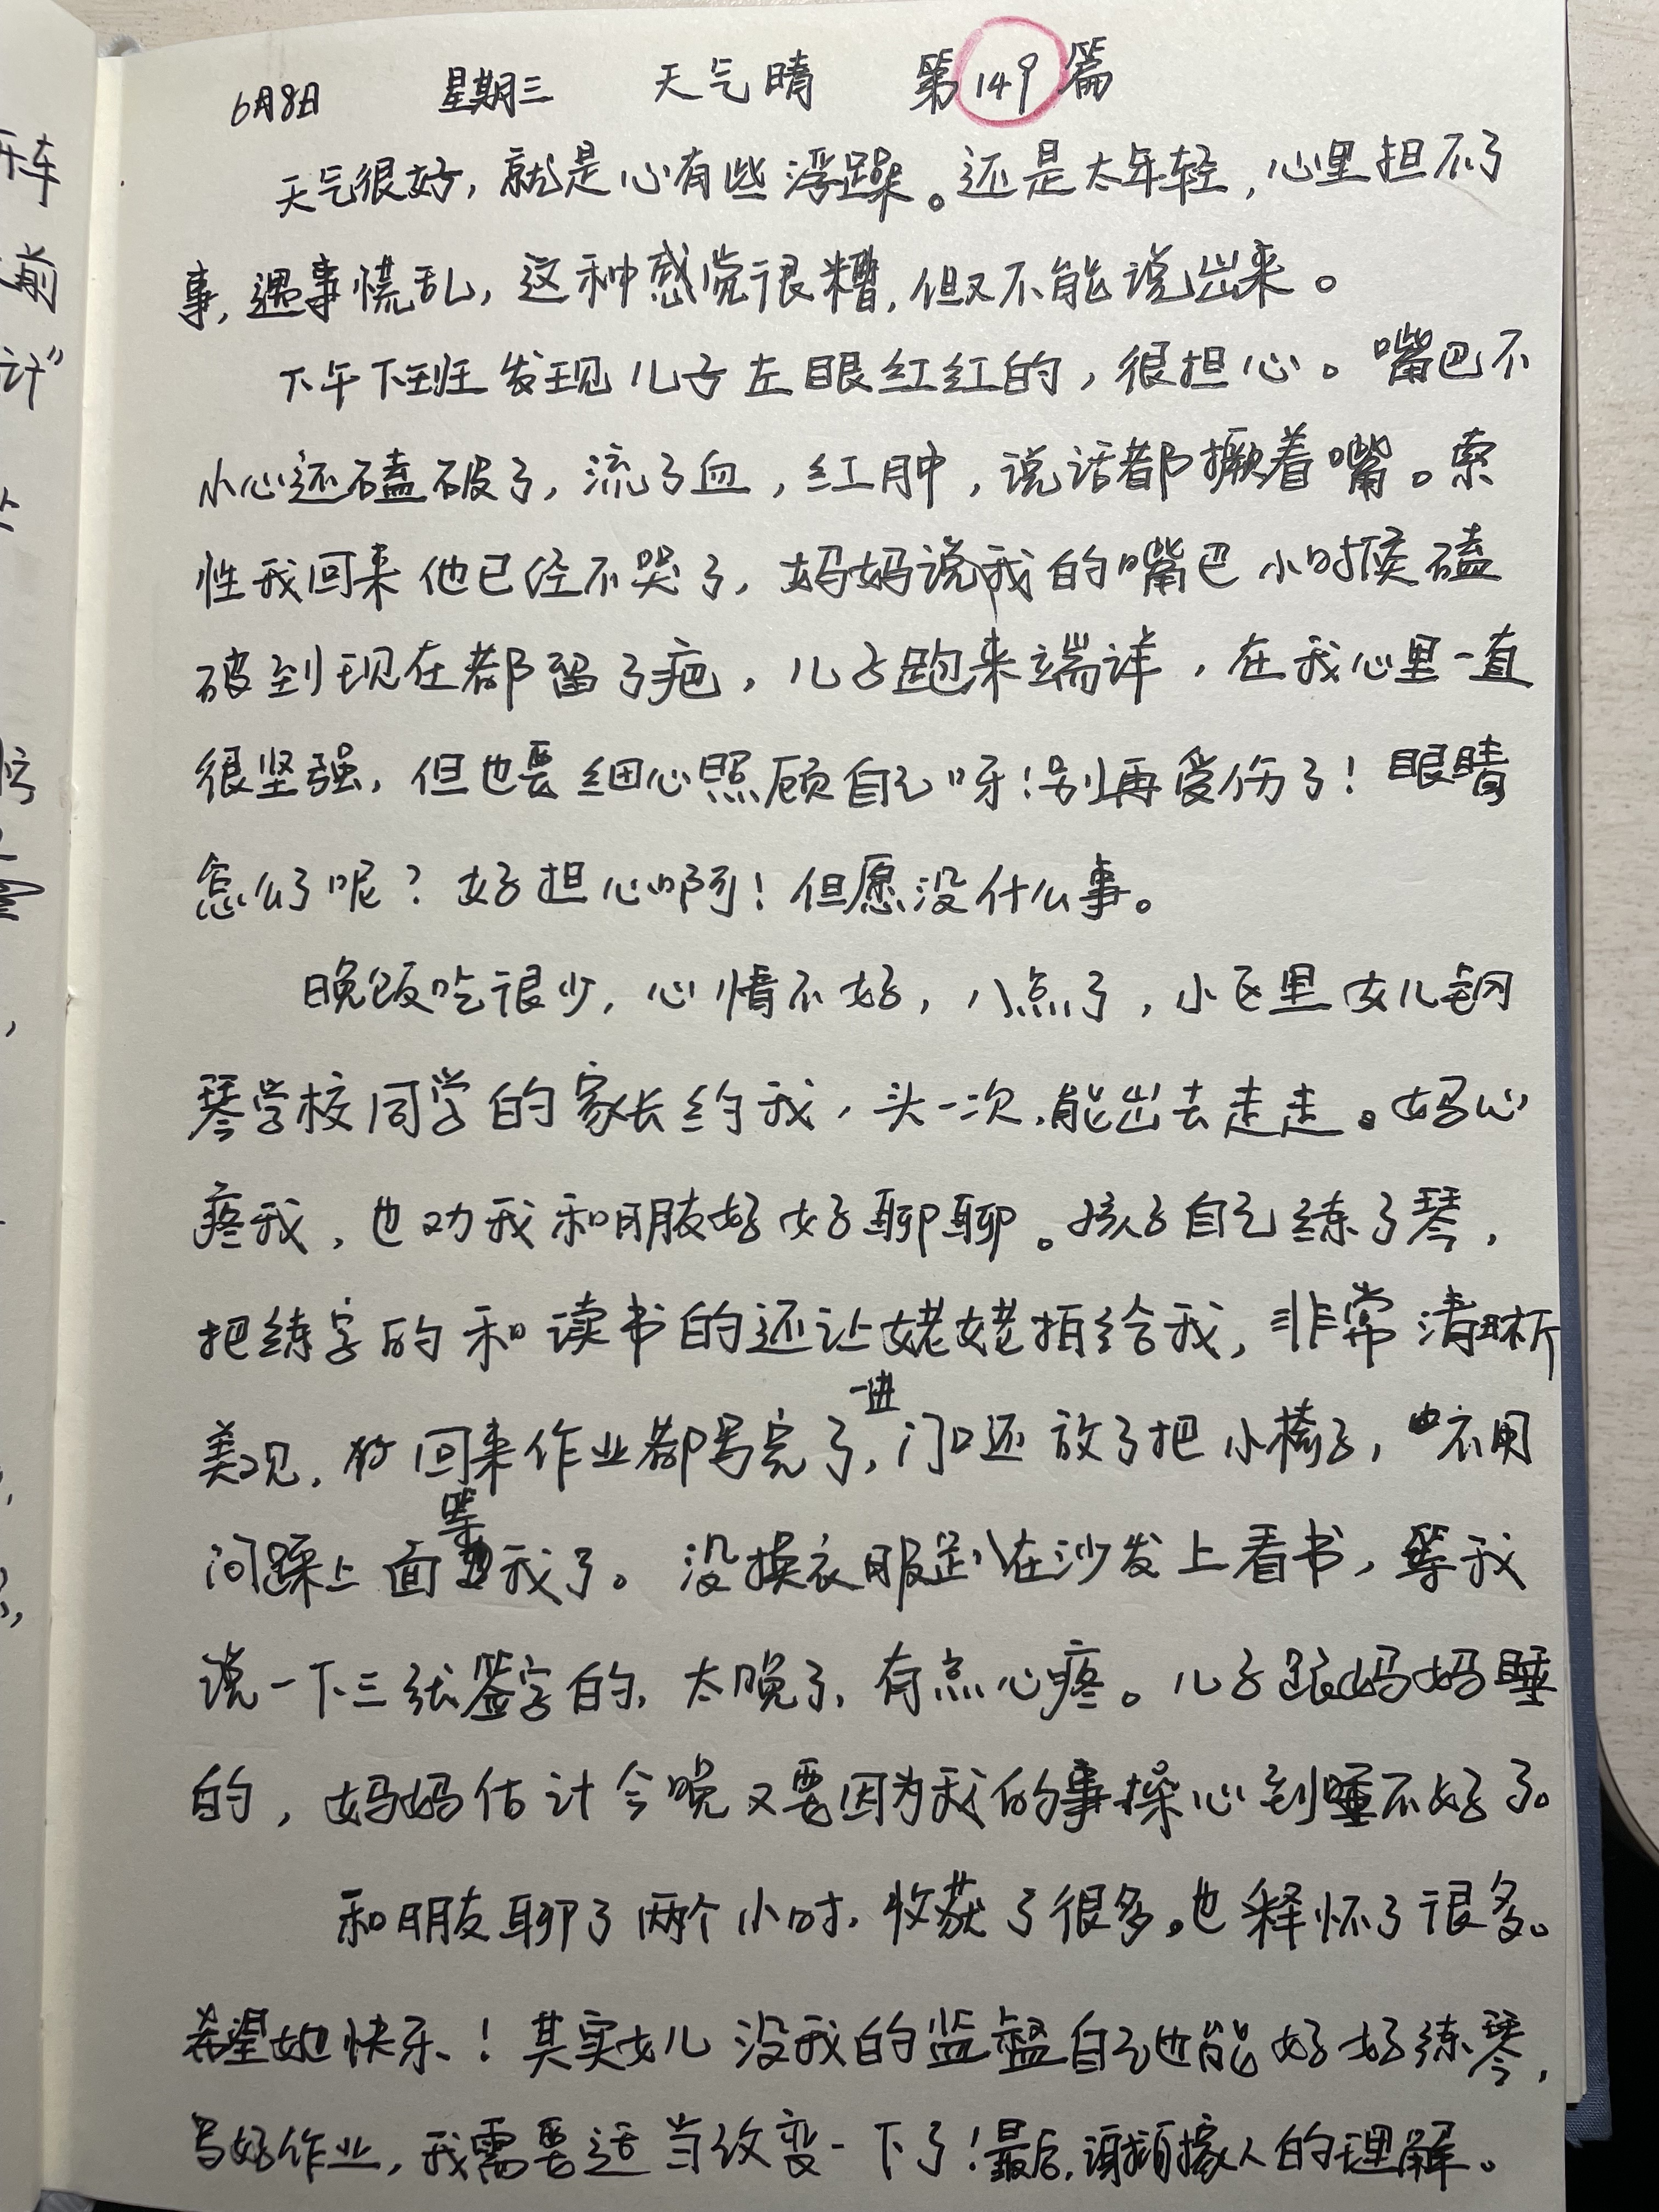 6月8日 星期三 天气晴 第149篇
天气很好，就是心有些浮躁。还是太年轻，心里担不了
事，遇事慌乱，这种感觉很糟，但又不能说出来。
下午下班发现儿子左眼红红的，很担心。嘴巴不
小心还磕破了，流了血，红肿，说话都撅着嘴。索
性我回来他已经不哭了，妈妈说我的嘴巴小时候磕
破到现在都留了疤，儿子跑来端详，在我心里一直
很坚强，但也要细心照顾自己呀！别再受伤了！眼睛
怎么了呢？好担心啊！但愿没什么事。
晚饭吃很少，心情不好，八点了，小区里女儿钢
琴学校同学的家长约我，头一次，能出去走走。妈心
疼我，也劝我和朋友好好聊聊。孩子自己练了琴，
把练字的和读书的还让姥姥拍给我，非常清晰
美观，回来作业都写完了，一进门口还放了把小椅子，不用
问踩上面等我了。没换衣服趴在沙发上看书，等我
说一下三张签字的，太晚了，有点心疼。儿子跟妈妈睡
的，妈妈估计今晚又要因为我的事操心到睡不好了。
和朋友聊了两个小时，收获了很多。也释怀了很多。
希望她快乐！其实女儿没我的监督自己也能好好练琴，
写好作业，我需要适当改变一下了！最后，谢谢家人的理解。
前
计”